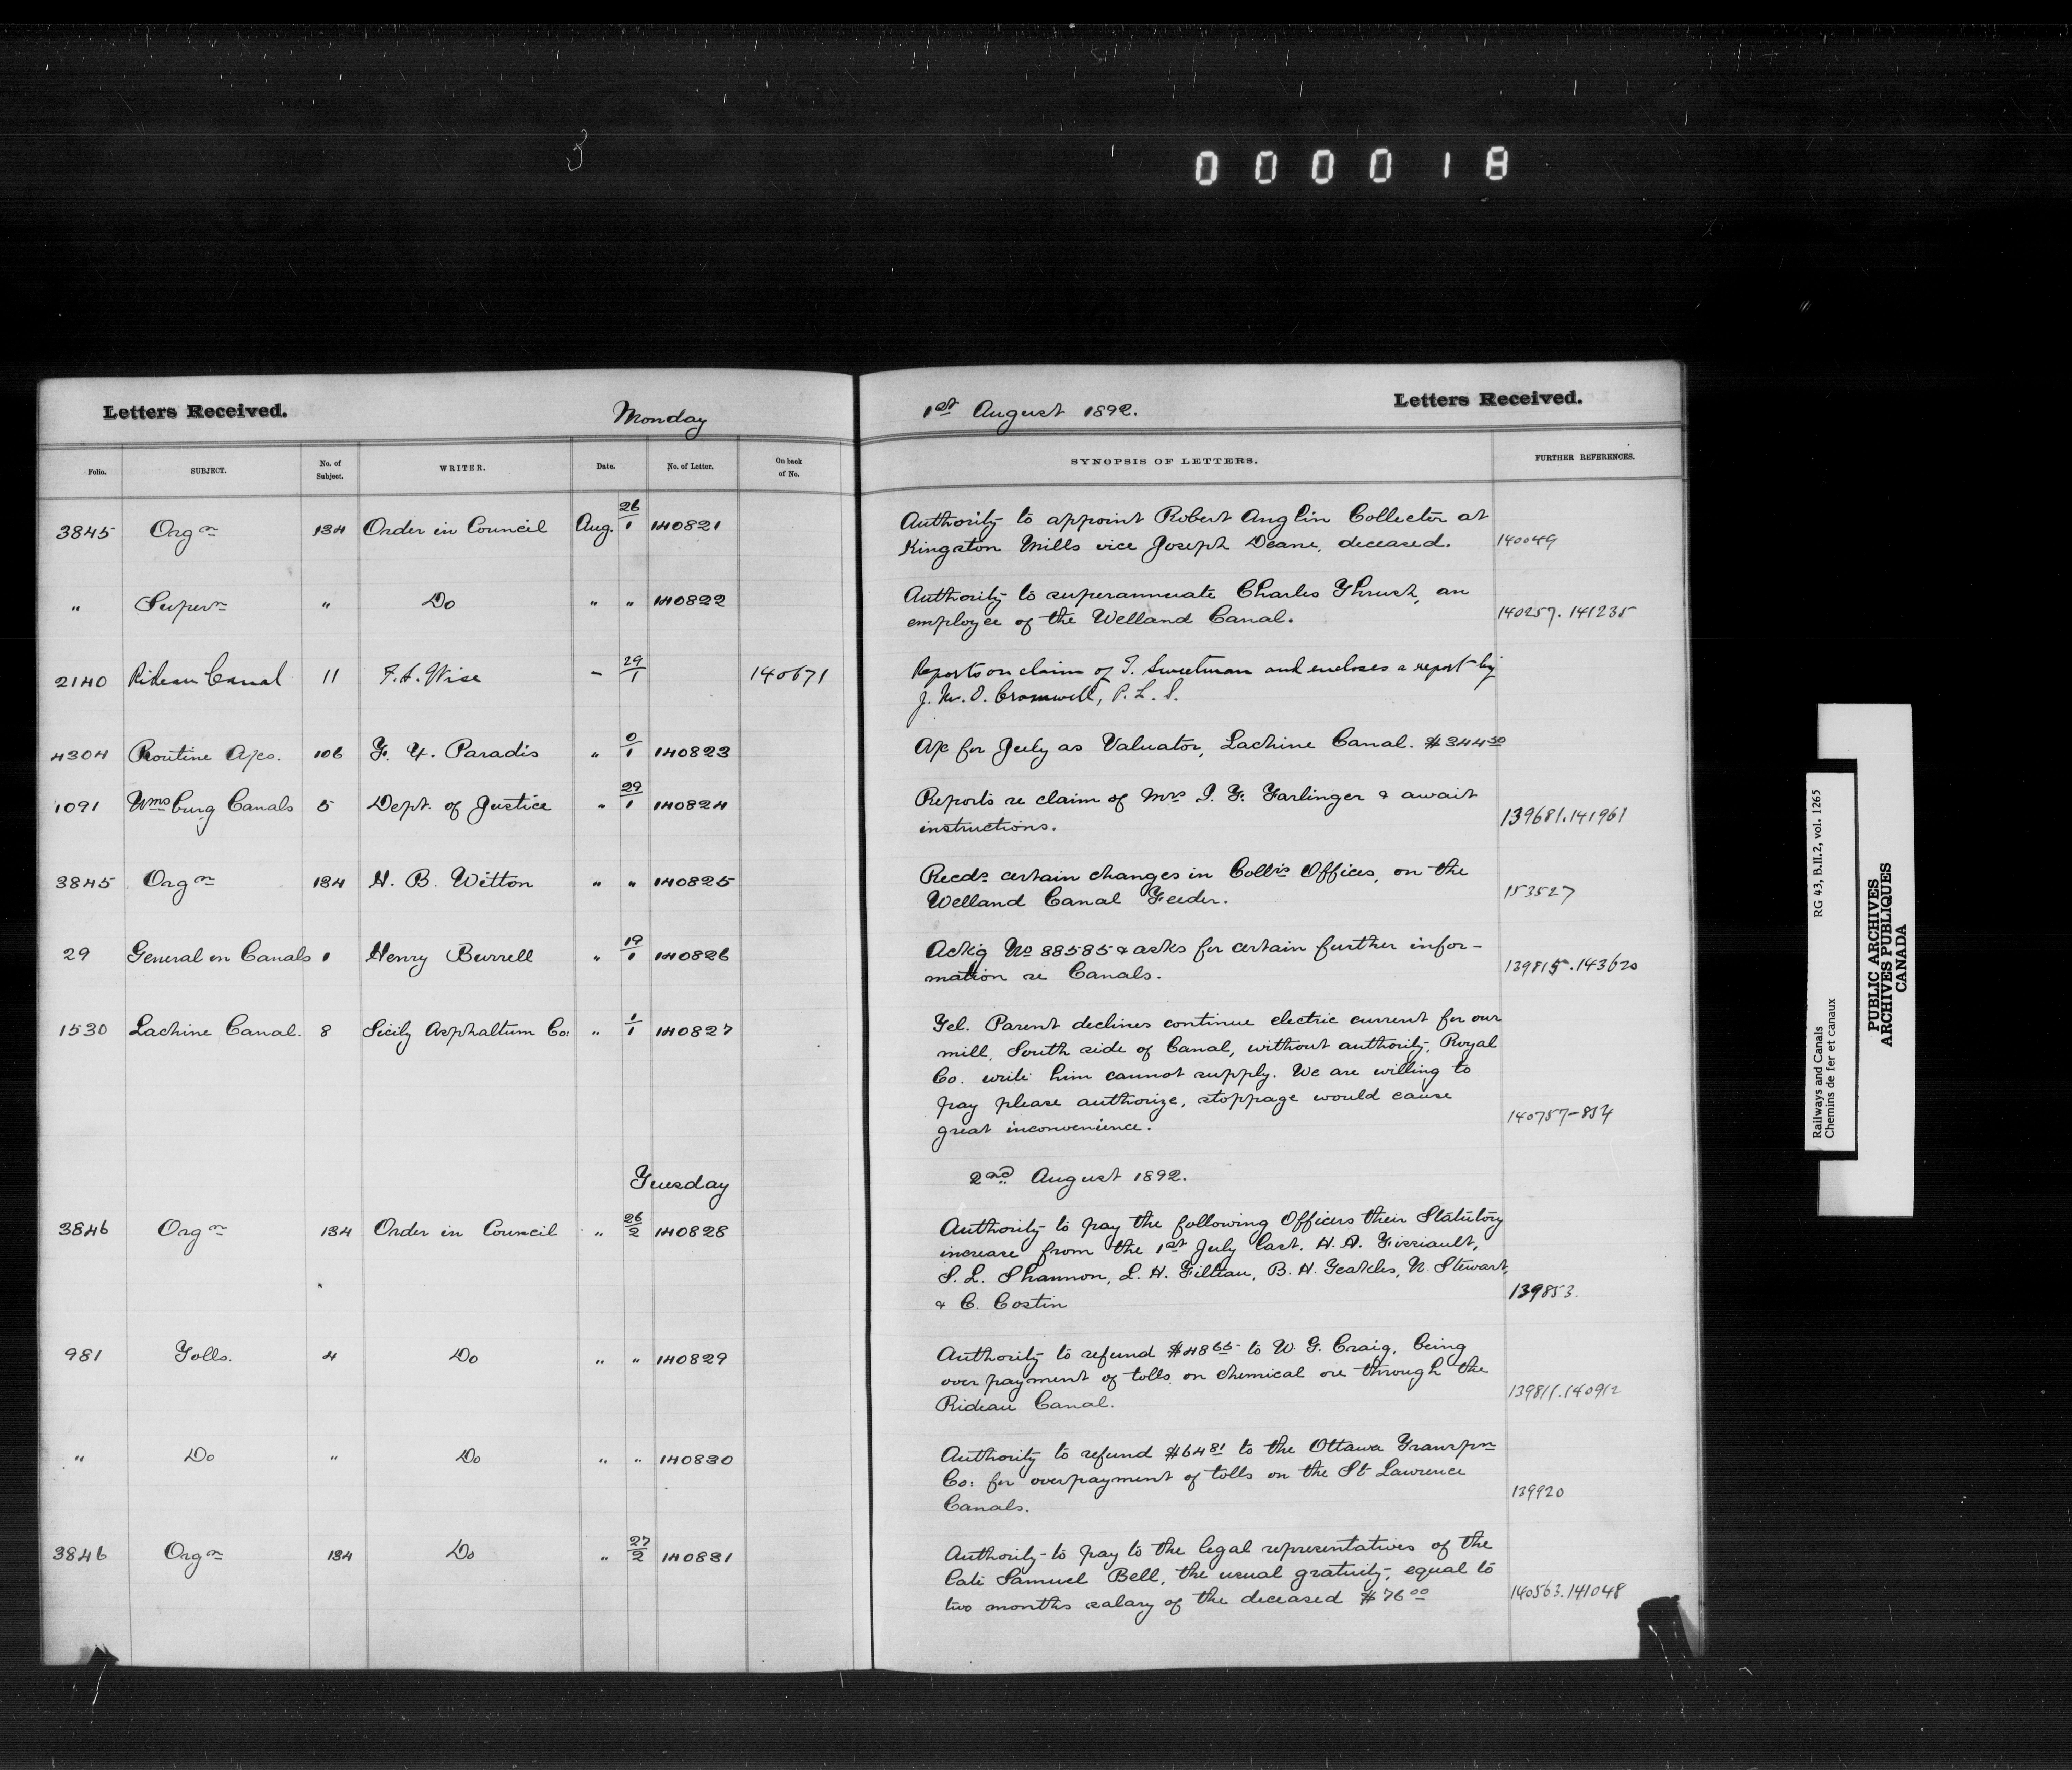 3
0 0 0 0 1 8
Letters Received. Monday 1st August 1892. Letters Received.
Folio. SUBJECT. No. of Subject. WRITER. Date. No. of Letter. On back of No. SYNOPSIS OF LETTERS. FURTHER REFERENCES.
3845 Orgn 134 Order in Council Aug. 26/1 140821 Authority to appoint Robert Anglin Collector at
Kingston Mills vice Joseph Deane, deceased. 140049
" Supern " Do " " 140822 Authority to superannuate Charles Thrush, an
employee of the Welland Canal. 140257. 141235
2140 Rideau Canal 11 F.A. Wise – 29/1 140671 Reports on claim of T. Sweetman and encloses a report by
J. M. O. Cromwell, P. L. S.
4304 Routine A/cs. 106 F. X. Paradis " 0/1 140823 A/c for July as Valuator, Lachine Canal. $344 50
1091 Wmsburg Canals 5 Dept. of Justice " 29/1 140824 Reports re claim of Mrs I. F. Farlinger & await
instructions. 139681. 141961
3845 Orgn 134 H. B. Witton " " 140825 Recds certain changes in Collrs Offices, on the
Welland Canal Feeder. 153527
29 General on Canals 1 Henry Burrell " 19/1 140826 Ackg No 88585 & asks for certain further infor-
mation re Canals. 139815. 143620
1530 Lachine Canal. 8 Sicily Asphaltum Co: " 1/1 140827 Tel. Parent declines continue electric current for our
mill, South side of Canal, without authority, Royal
Co. write him cannot supply. We are willing to
pay please authorize, stoppage would cause
great inconvenience. 140757-834
Tuesday 2nd August 1892.
3846 Orgn 134 Order in Council " 26/2 140828 Authority to pay the following Officers their Statutory
increase from the 1st July last. H. A. Fissiault,
S. L. Shannon, L. H. Filteau, B. H. Teakles, N. Stewart,
& C. Costin 139853.
981 Tolls. 4 Do " " 140829 Authority to refund $48 65 to W. G. Craig, being
over payment of tolls on chemical ore through the
Rideau Canal. 139811. 140912
" Do " Do " " 140830 Authority to refund $64 81 to the Ottawa Transpn
Co: for overpayment of tolls on the St Lawrence
Canals. 139920
3846 Orgn 134 Do " 27/2 140831 Authority to pay to the legal representatives of the
late Samuel Bell, the usual gratuity, equal to
two months salary of the deceased $76 00 140563. 141048
Railways and Canals RG 43, B.II.2, vol. 1265
Chemins de fer et canaux
PUBLIC ARCHIVES
ARCHIVES PUBLIQUES
CANADA